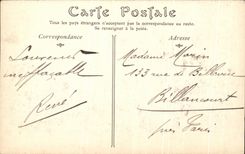 Carte Postale
Tous les pays étrangers n'acceptent pas la correspondance au recto.
Se renseigner à la poste.
Correspondance
Adresse
Souvenir
ineffaçable
René
Madame Morin
133 rue de Billancourt
Billancourt
près Paris